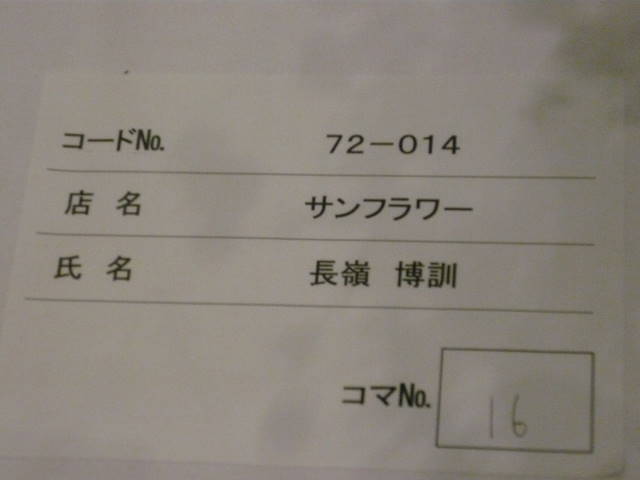 コードNo. 72-014
店名 サンフラワー
氏名 長嶺 博訓
コマNo. 16